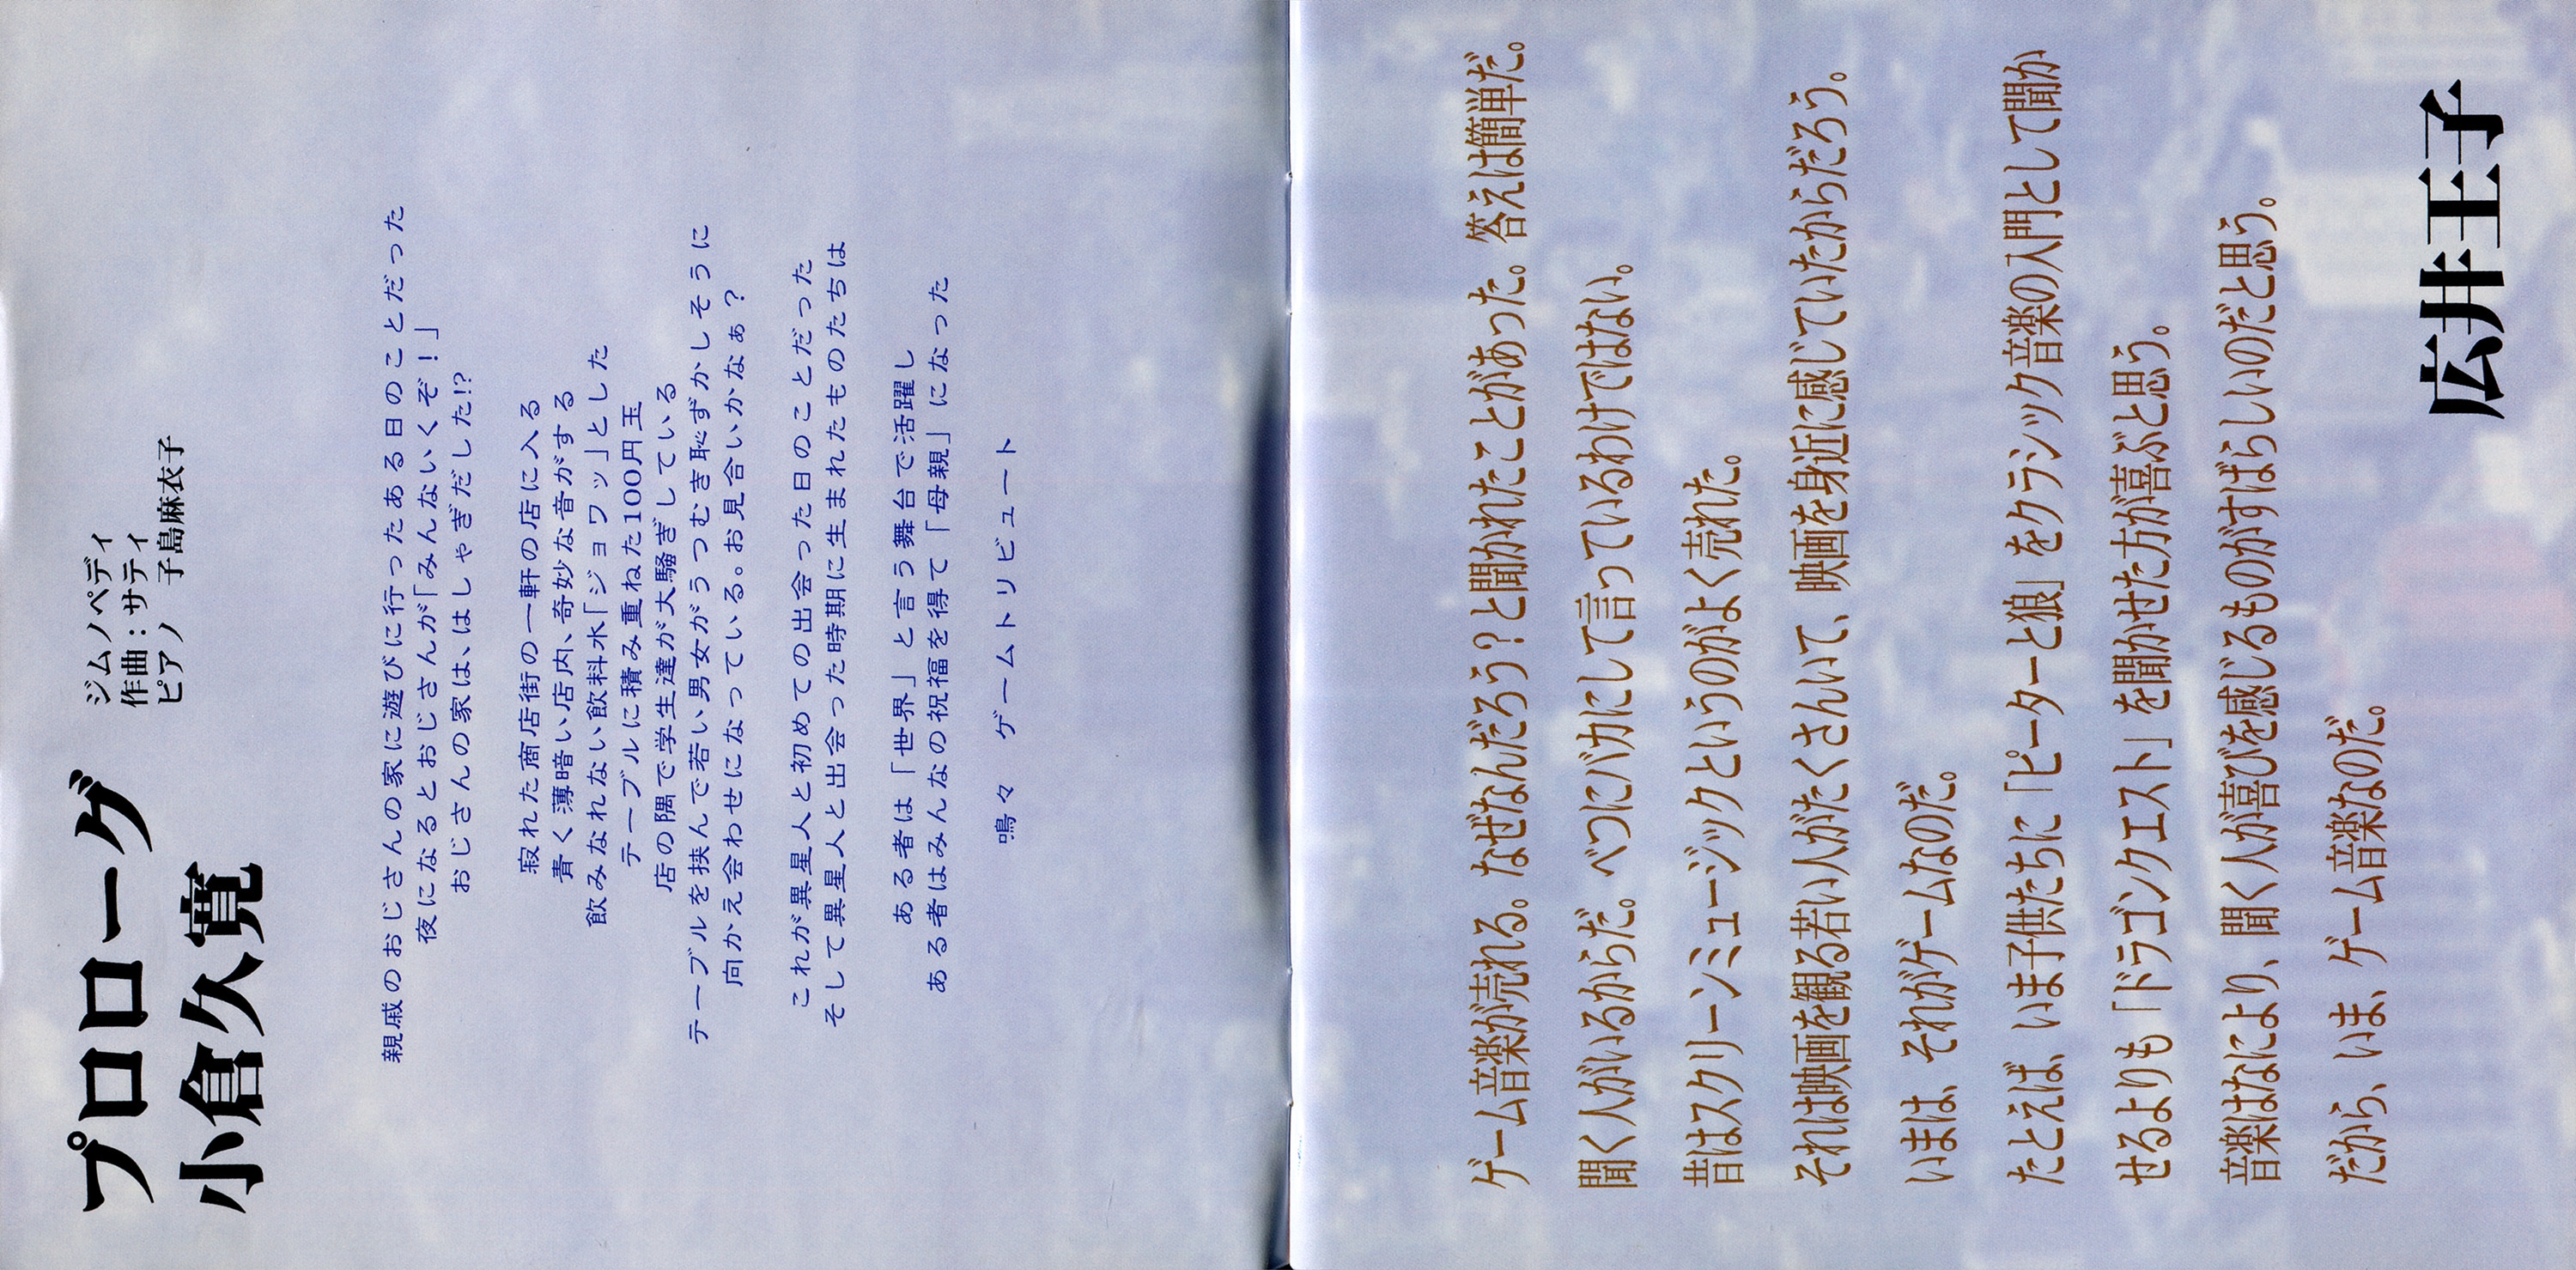 プロローグ
小倉久寛
ジムノペディ
作曲：サティ
ピアノ　子島麻衣子
親戚のおじさんの家に遊びに行ったある日のことだった
夜になるとおじさんが「みんないくぞ！」
おじさんの家は、はしゃぎだした!?
寂れた商店街の一軒の店に入る
青く薄暗い店内、奇妙な音がする
飲みなれない飲料水「ジョワッ」とした
テーブルに積み重ねた100円玉
店の隅で学生達が大騒ぎしている
テーブルを挟んで若い男女がうつむき恥ずかしそうに
向かえ会わせになっている。お見合いかなぁ？
これが異星人と初めての出会った日のことだった
そして異星人と出会った時期に生まれたものたちは
ある者は「世界」と言う舞台で活躍し
ある者はみんなの祝福を得て「母親」になった
鳴々　ゲームトリビュート
ゲーム音楽が売れる。なぜなんだろう？と聞かれたことがあった。答えは簡単だ。
聞く人がいるからだ。べつにバカにして言っているわけではない。
昔はスクリーンミュージックというのがよく売れた。
それは映画を観る若い人がたくさんいて、映画を身近に感じていたからだろう。
いまは、それがゲームなのだ。
たとえば、いま子供たちに「ピーターと狼」をクラシック音楽の入門として聞か
せるよりも「ドラゴンクエスト」を聞かせた方が喜ぶと思う。
音楽はなにより、聞く人が喜びを感じるものがすばらしいのだと思う。
だから、いま、ゲーム音楽なのだ。
広井王子